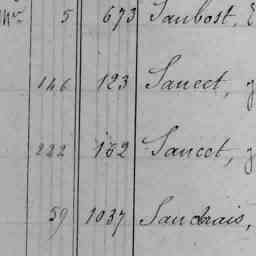 Mr 5 673 Saubost,
146 123 Saucet,
222 132 Saucet,
59 1037 Saudrais,